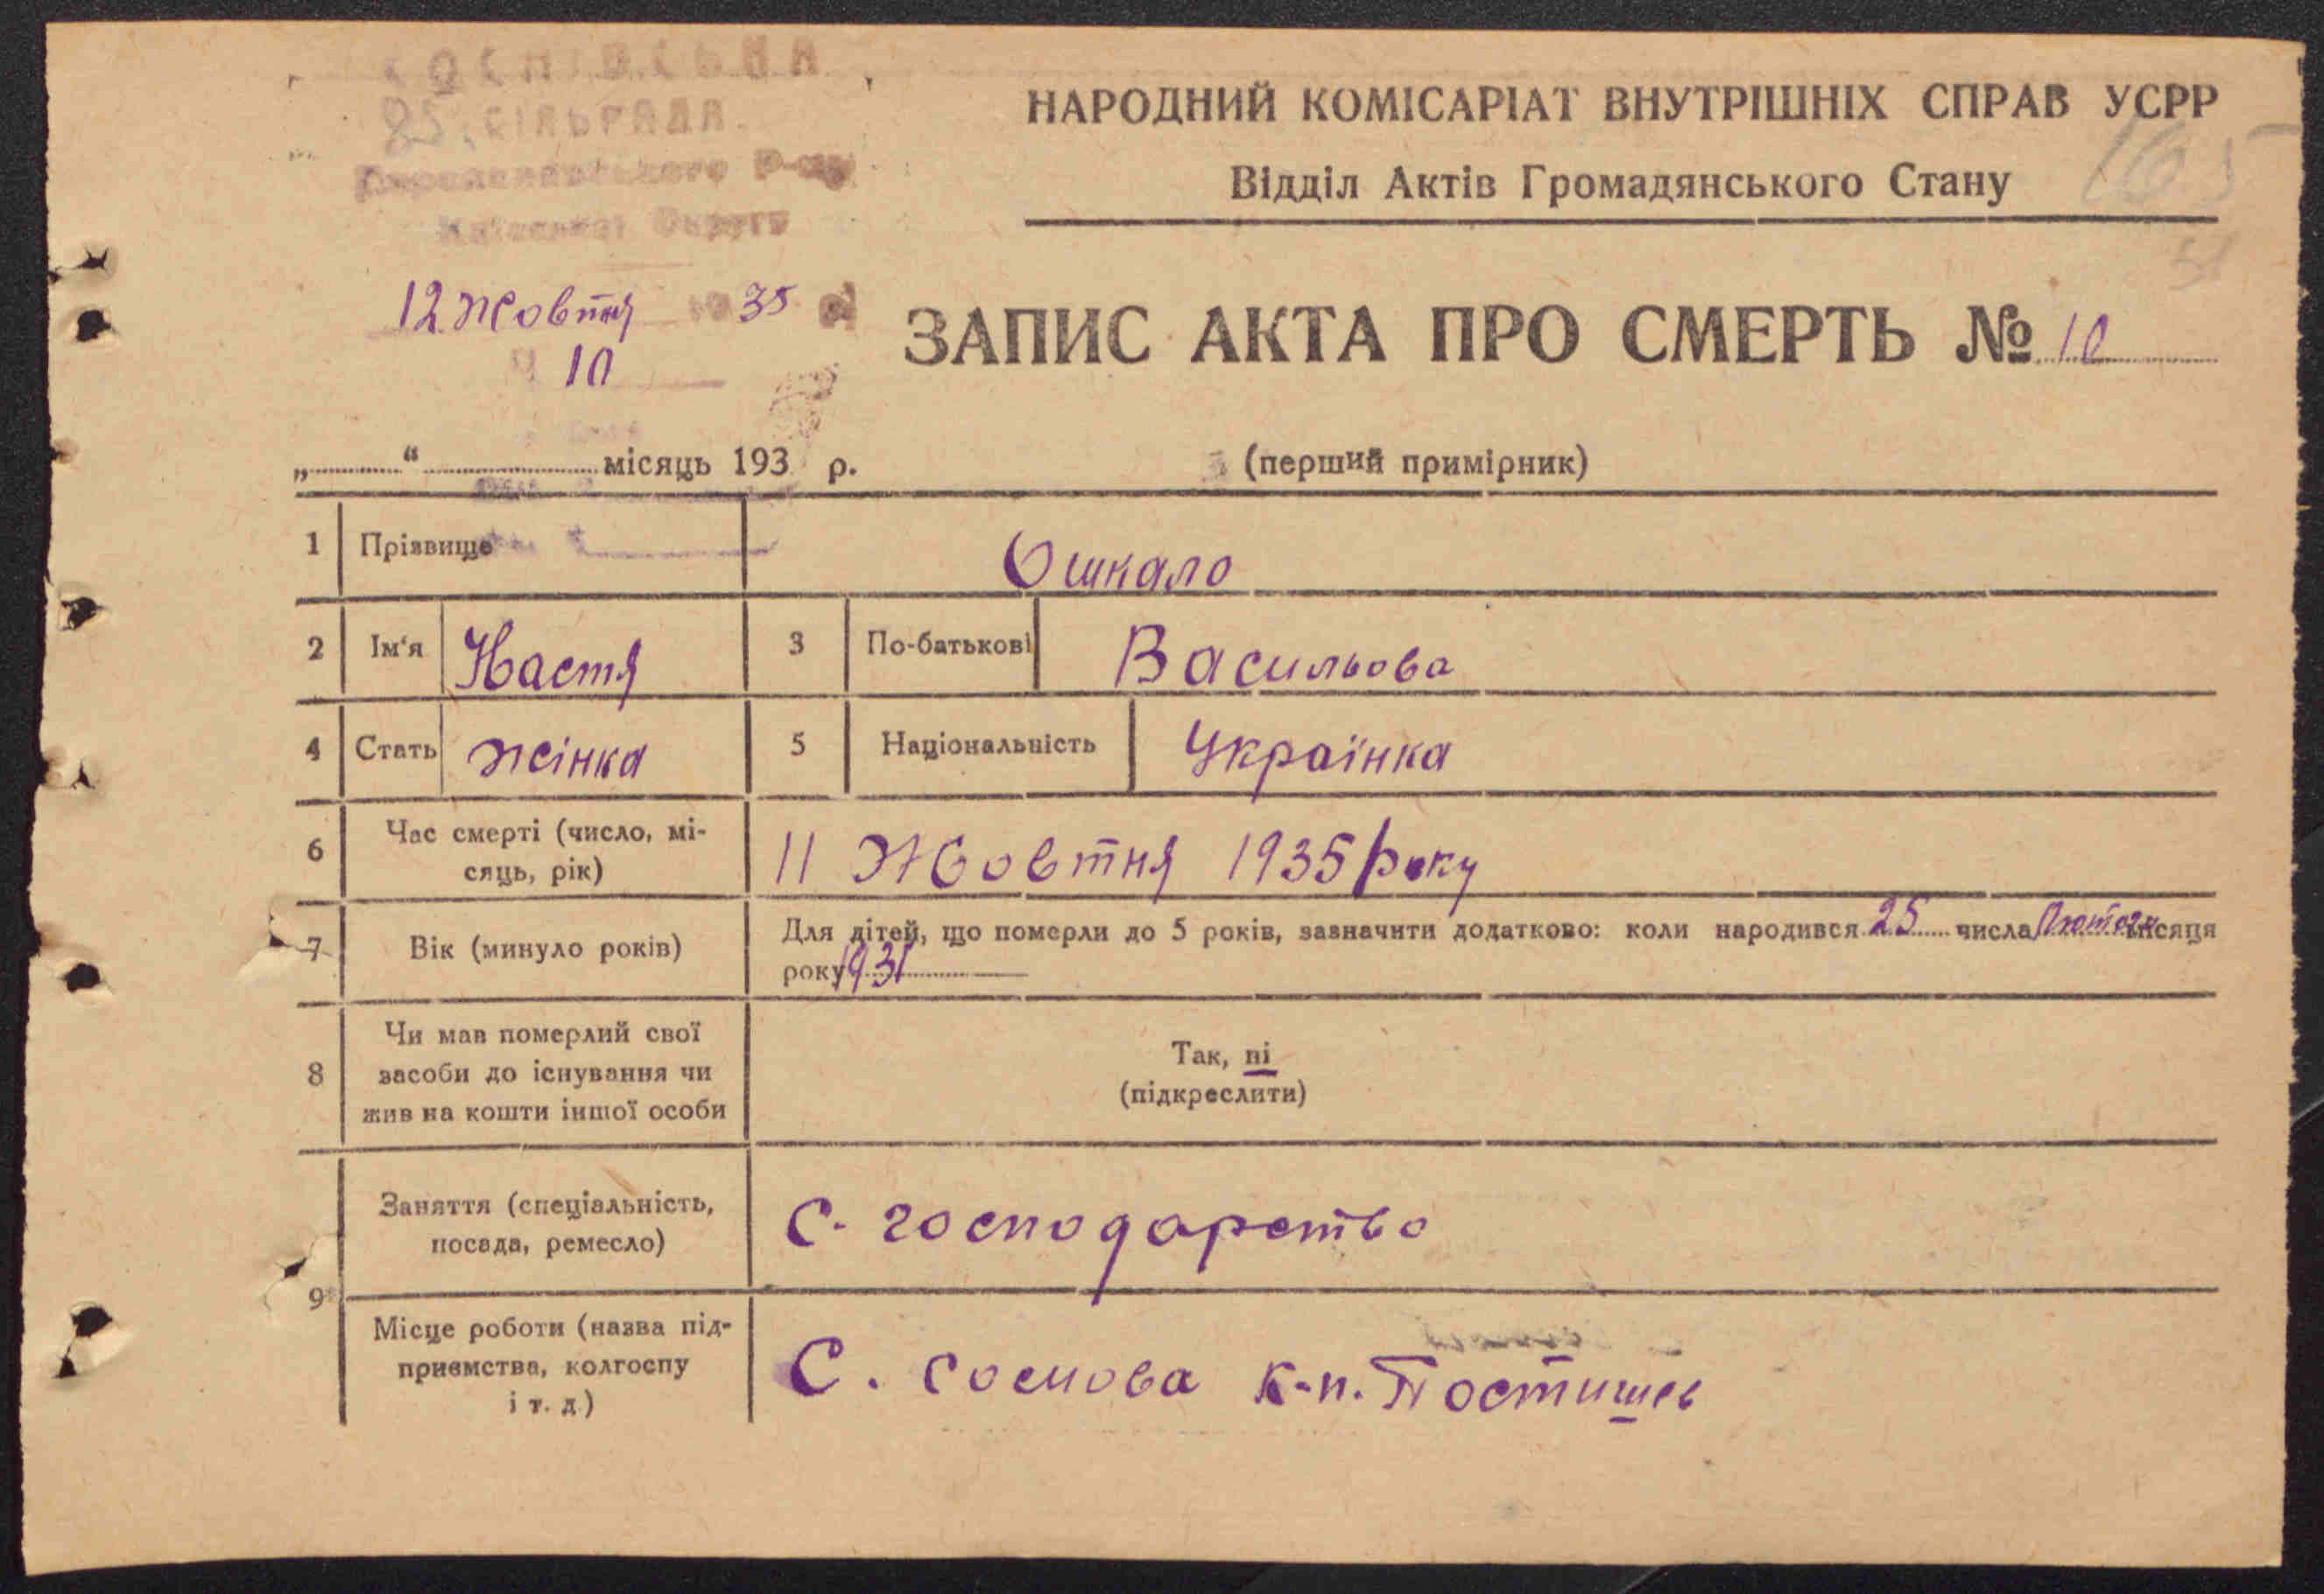 СОСНІВСЬКА
85. СІЛЬРАДА.
Київської Округи
НАРОДНИЙ КОМІСАРІАТ ВНУТРІШНІХ СПРАВ УСРР
165
Відділ Актів Громадянського Стану
12 Жовтня 35
10
ЗАПИС АКТА ПРО СМЕРТЬ № 10
„ “ місяць 193 р.
(перший примірник)
1 Прізвище Ошкало
2 Ім‘я Настя 3 По-батькові Васильова
4 Стать жінка 5 Національність Українка
6 Час смерті (число, мі-
сяць, рік)
11 Жовтня 1935 Року
7 Вік (минуло років)
Для дітей, що померли до 5 років, зазначити додатково: коли народився 25 числа Лютого місяця
року 1931
8 Чи мав померлий свої
засоби до існування чи
жив на кошти іншої особи
Так, ні
(підкреслити)
9 Заняття (спеціальність,
посада, ремесло)
С. господарство
Місце роботи (назва під-
приємства, колгоспу
і т. д.)
С. Соснова к-п. Постишев